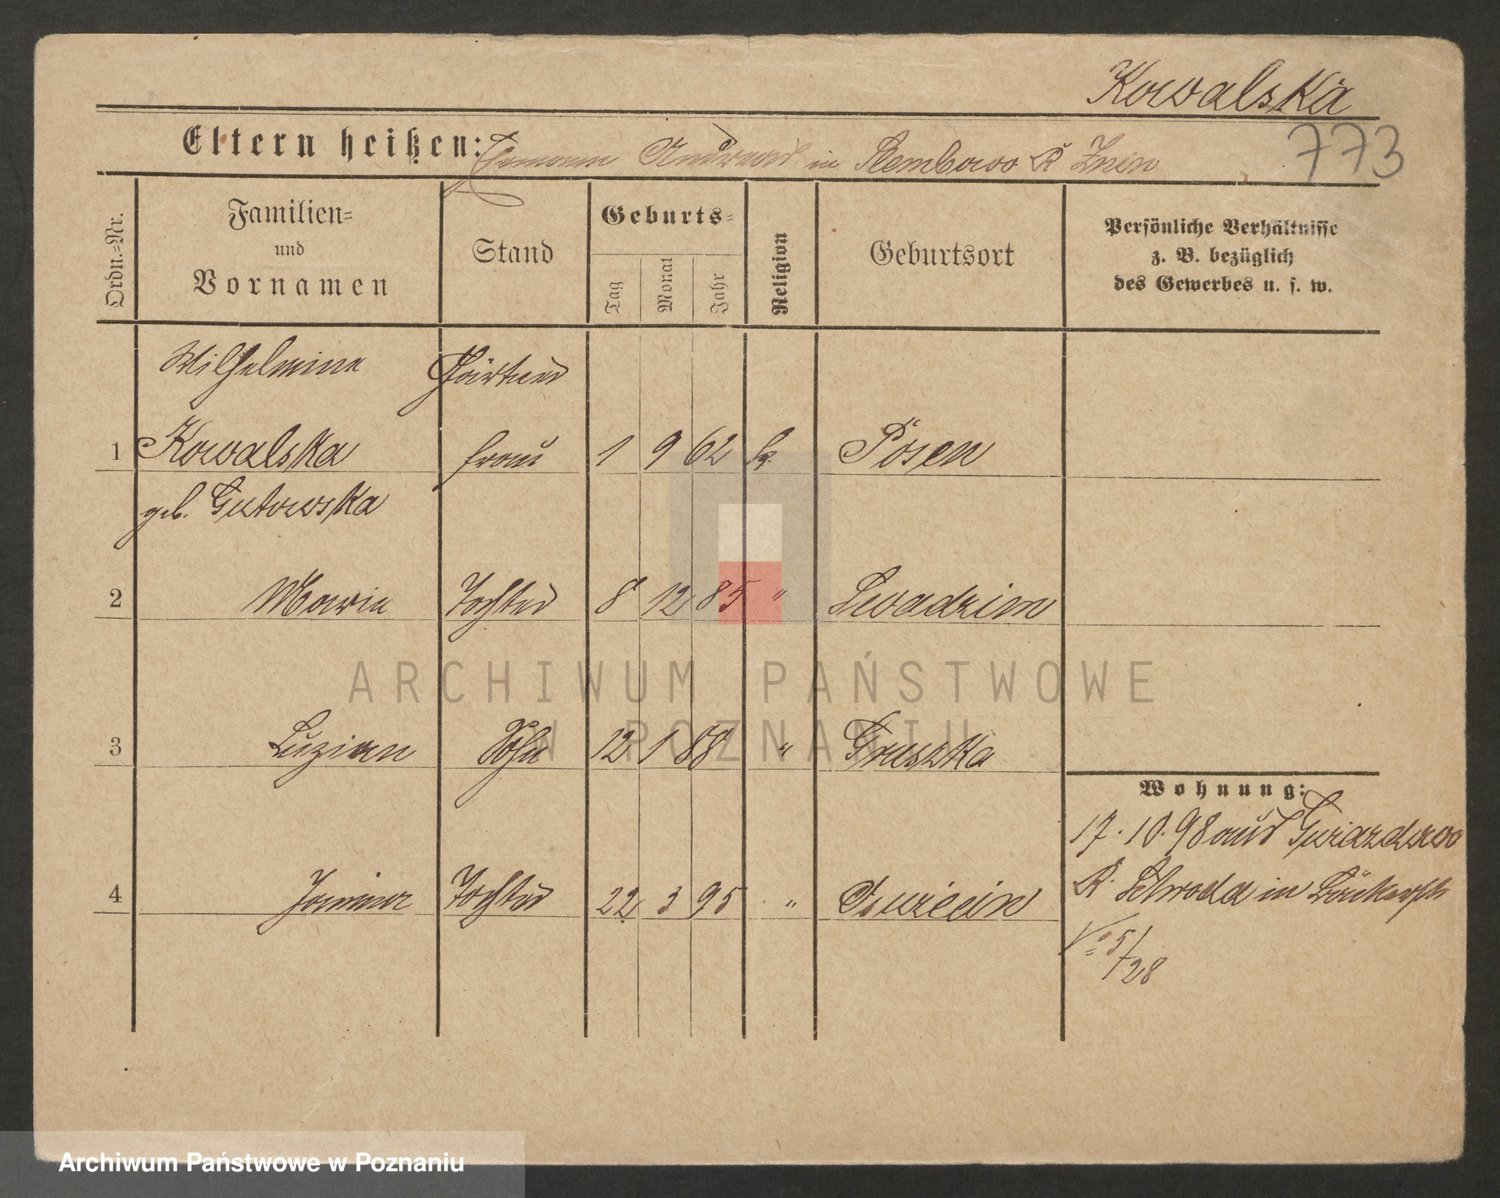 Kowalska
773
Eltern heißen: Andreas in Rembowo Kr Znin
Ordn.-Nr.
Familien-
und
Vornamen
Stand
Geburts-
Tag
Monat
Jahr
Religion
Geburtsort
Persönliche Verhältnisse
z. B. bezüglich
des Gewerbes u. s. w.
Wilhelmine Gärtner
1 Kowalska frau 1 9 62 k. Posen
geb. Gutowska
2 Marie Tochter 8 12 85 " Swadzim
3 Luzian Sohn 12 1 88 " Gruszka
4 Janina Tochter 22 3 95 "
Wohnung:
17. 10. 98 aus Gwiazdowo
Kr. Schroda in
No 5/28
ARCHIWUM PAŃSTWOWE
W POZNANIU
Archiwum Państwowe w Poznaniu